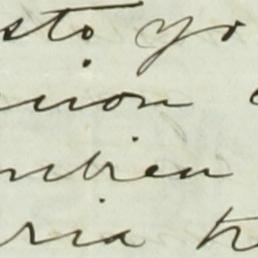 sto yo
nion
mbien
ria tr